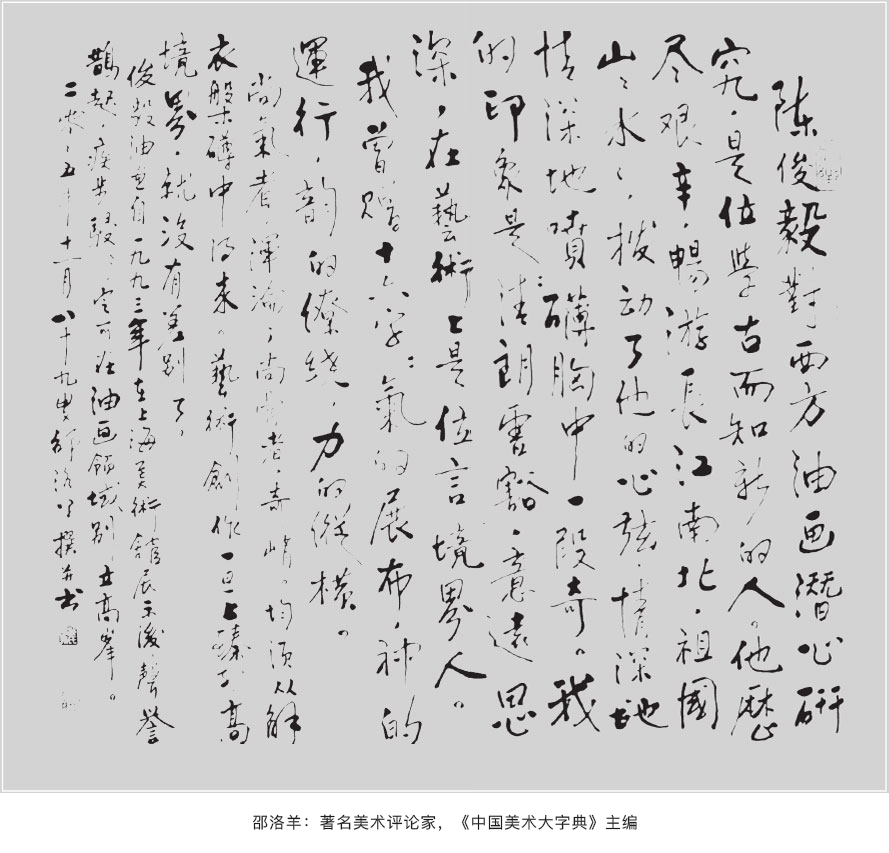 陈俊毅對西方油画潛心研
究,是位学古而知新的人。他歷
尽艰辛,暢游長江南北,祖國
山〻水〻,拨动了他的心弦,情深地
情深地喷礴胸中一段奇。我
的印象是:清朗豁,意遠思
深,在藝術上是位言境界人。
我曾赠十六字:氣的展布,神的
運行,韵的缭绕,力的縱横。
尚氣者,渾淪,尚者,奇峭。均須从解
衣般礴中得来。藝術創作一旦上臻于高
境界,就没有差别了。
俊毅油画自一九九三年在上海美術館展示後聲誉
鵲起,疾步駸〻,定可在油画領域别立高峯。
二零〇五年十一月八十九叟邵洛羊撰并书
邵洛羊:著名美术评论家,《中国美术大字典》主编